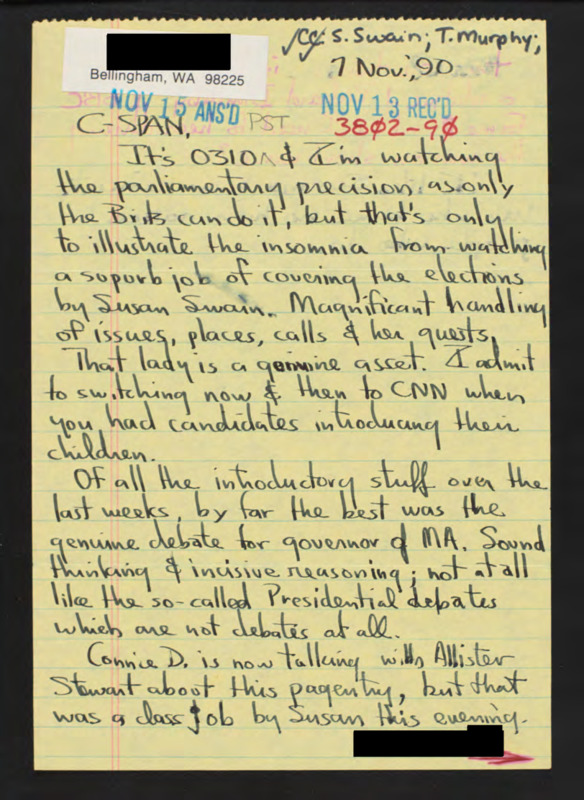 cc: S. Swain; T. Murphy;
7 Nov., 90
Bellingham, WA 98225
NOV 15 ANS'D
NOV 13 REC'D
3802-90
C-SPAN,
PST
It's 0310^ & I'm watching
the parliamentary precision as only
the Brits can do it, but that's only
to illustrate the insomnia from watching
a supurb job of covering the elections
by Susan Swain. Magnificant handling
of issues, places, calls & her guests.
That lady is a genuine asset. I admit
to switching now & then to CNN when
you had candidates introducing their
children.
Of all the introductory stuff over the
last weeks, by far the best was the
genuine debate for governor of MA. Sound
thinking & incisive reasoning; not at all
like the so-called Presidential debates
which are not debates at all.
Connie D. is now talking with Allister
Stewart about this pagentry, but that
was a class job by Susan this evening.